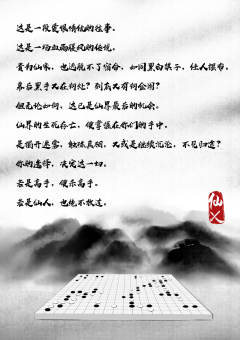 这是一段爱恨情仇的往事。
这是一场血雨腥风的传说。
贵为仙家，也逃脱不了宿命，如同黑白棋子，任人摆布。
幕后黑手又在何处？到底又有何企图？
但无论如何，这已是仙界最后的机会。
仙界的生死存亡，便掌握在你们的手中。
是揭开迷雾，触碰真相，又或是继续沉沦，不见归途？
你的选择，决定这一切。
若是高手，便示高手。
若是仙人，也绝不放过。
仙